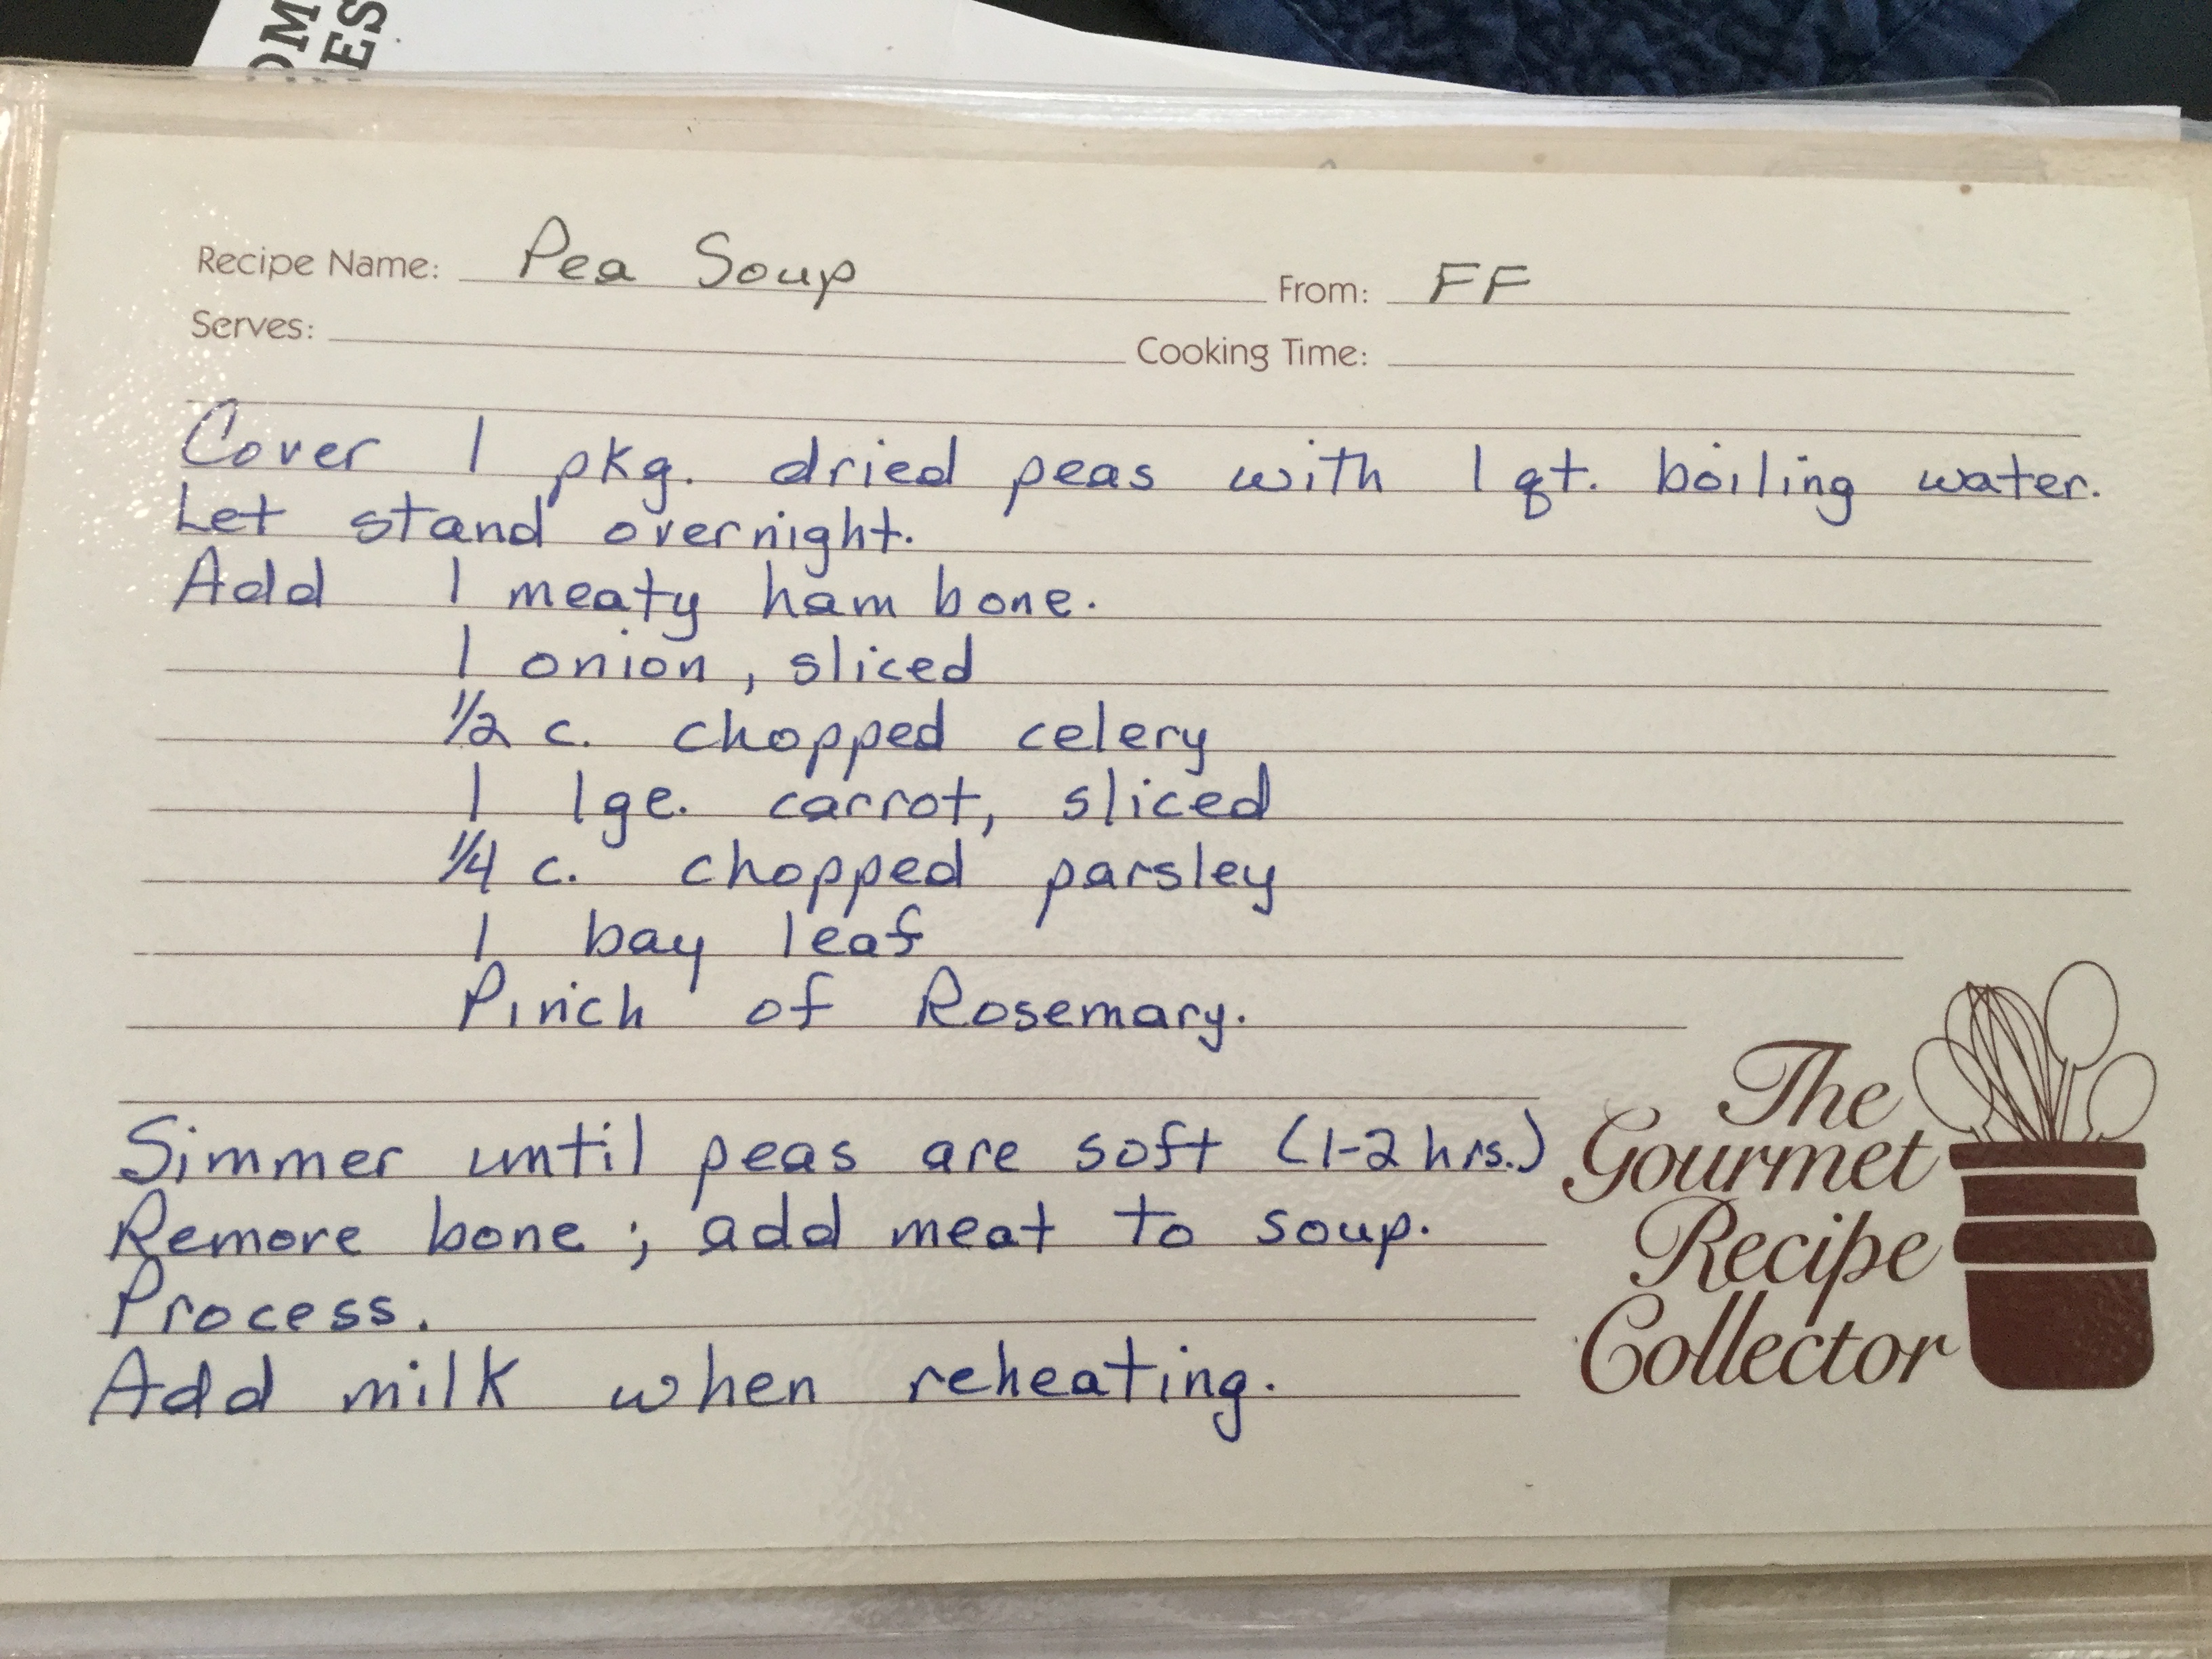 Recipe Name: Pea Soup From: FF
Serves: Cooking Time:
Cover 1 pkg. dried peas with 1 qt. boiling water.
Let stand overnight.
Add 1 meaty ham bone.
1 onion, sliced
1/2 c. chopped celery
1 lge. carrot, sliced
1/4 c. chopped parsley
1 bay leaf
Pinch of Rosemary.
Simmer until peas are soft (1-2 hrs.)
Remove bone; add meat to soup.
Process.
Add milk when reheating.
The
Gourmet
Recipe
Collector